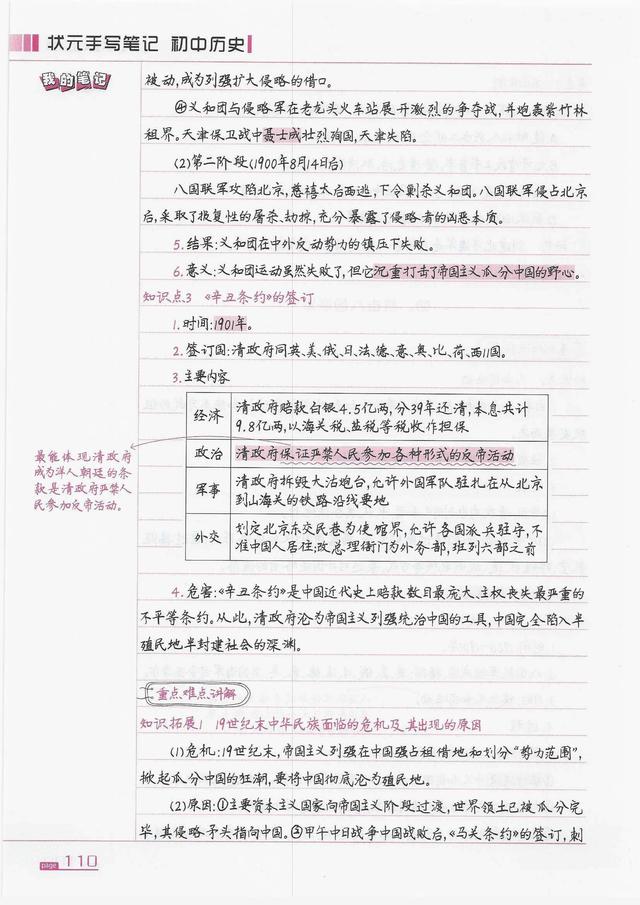 状元手写笔记 初中历史
我的笔记
被动,成为列强扩大侵略的借口。
④义和团与侵略军在老龙头火车站展开激烈的争夺战,并炮轰紫竹林
租界。天津保卫战中聂士成壮烈殉国,天津失陷。
(2)第二阶段(1900年8月14日后)
八国联军攻陷北京,慈禧太后西逃,下令剿杀义和团。八国联军侵占北京
后,采取了报复性的屠杀、劫掠,充分暴露了侵略者的凶恶本质。
5.结果:义和团在中外反动势力的镇压下失败。
6.意义:义和团运动虽然失败了,但它沉重打击了帝国主义瓜分中国的野心。
知识点3 《辛丑条约》的签订
1.时间:1901年。
2.签订国:清政府同英、美、俄、日、法、德、意、奥、比、荷、西11国。
3.主要内容
经济
清政府赔款白银4.5亿两,分39年还清,本息共计
9.8亿两,以海关税、盐税等税收作担保
政治
清政府保证严禁人民参加各种形式的反帝活动
军事
清政府拆毁大沽炮台,允许外国军队驻扎在从北京
到山海关的铁路沿线要地
外交
划定北京东交民巷为使馆界,允许各国派兵驻守,不
准中国人居住;改总理衙门为外务部,班列六部之前
最能体现清政府
成为洋人朝廷的条
款是清政府严禁人
民参加反帝活动。
4.危害:《辛丑条约》是中国近代史上赔款数目最庞大、主权丧失最严重的
不平等条约。从此,清政府沦为帝国主义列强统治中国的工具,中国完全陷入半
殖民地半封建社会的深渊。
重点、难点讲解
知识拓展1 19世纪末中华民族面临的危机及其出现的原因
(1)危机:19世纪末,帝国主义列强在中国强占租借地和划分“势力范围”,
掀起瓜分中国的狂潮,要将中国彻底沦为殖民地。
(2)原因:①主要资本主义国家向帝国主义阶段过渡,世界领土已被瓜分完
毕,其侵略矛头指向中国。②甲午中日战争中国战败后,《马关条约》的签订,刺
page 110